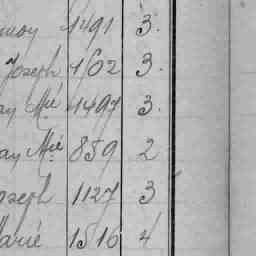 1491 3.
Joseph 1502 3.
ay Mié 1497 3.
ay Mié 859 2
oseph 1127 3
Marie 1516 4